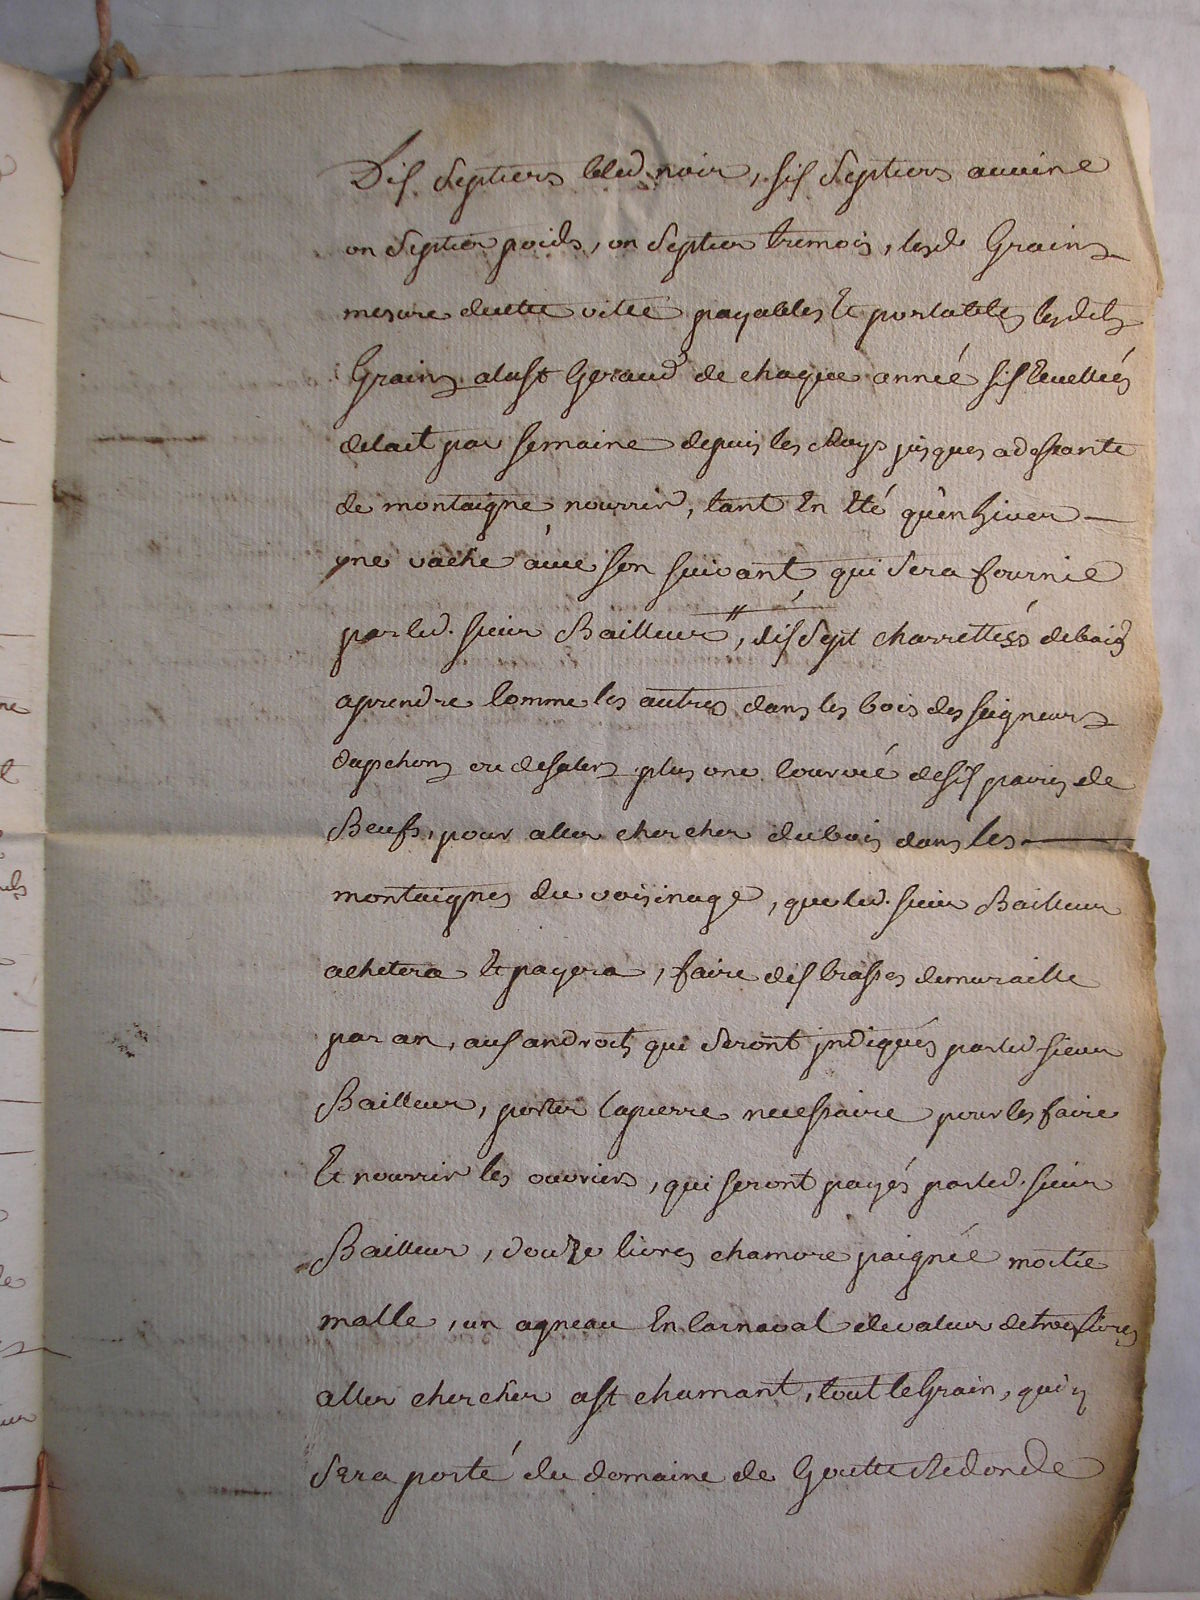 Dix Septiers bled noir, six Septiers avoine
un Septier poids, un Septier tremois, lesd. Grains
mesure de cette ville payables Et portables lesdits
Grains a la St Geraud de chaque année six Ecuellées
delait par semaine depuis les Rays jusques a dessante
de montaigne nourrir, tant En Eté qu'en hiver
une vache avec son suivant qui Sera fournie
par led. sieur Bailleur, dix Sept charrettées de bois
a prendre Comme les autres dans les bois des seigneurs
dapchon ou de salers plus une Courvée de six paires de
Beufs, pour aller chercher du bois dans les
montaignes du voisinage, que led. sieur Bailleur
achetera Et payera, faire dix brasses de muraille
par an, aux androits qui Seront jndiqués par led sieur
Bailleur, porter la pierre necessaire pour les faire
Et nourrir les ouvriers, qui seront payés par led. sieur
Bailleur, douze livres chamvre paignée moitié
malle, un agneau En Carnaval de valeur de trois livres
aller chercher a St chamant, tout le Grain, qui y
Sera porté du domaine de Goutte Redonde